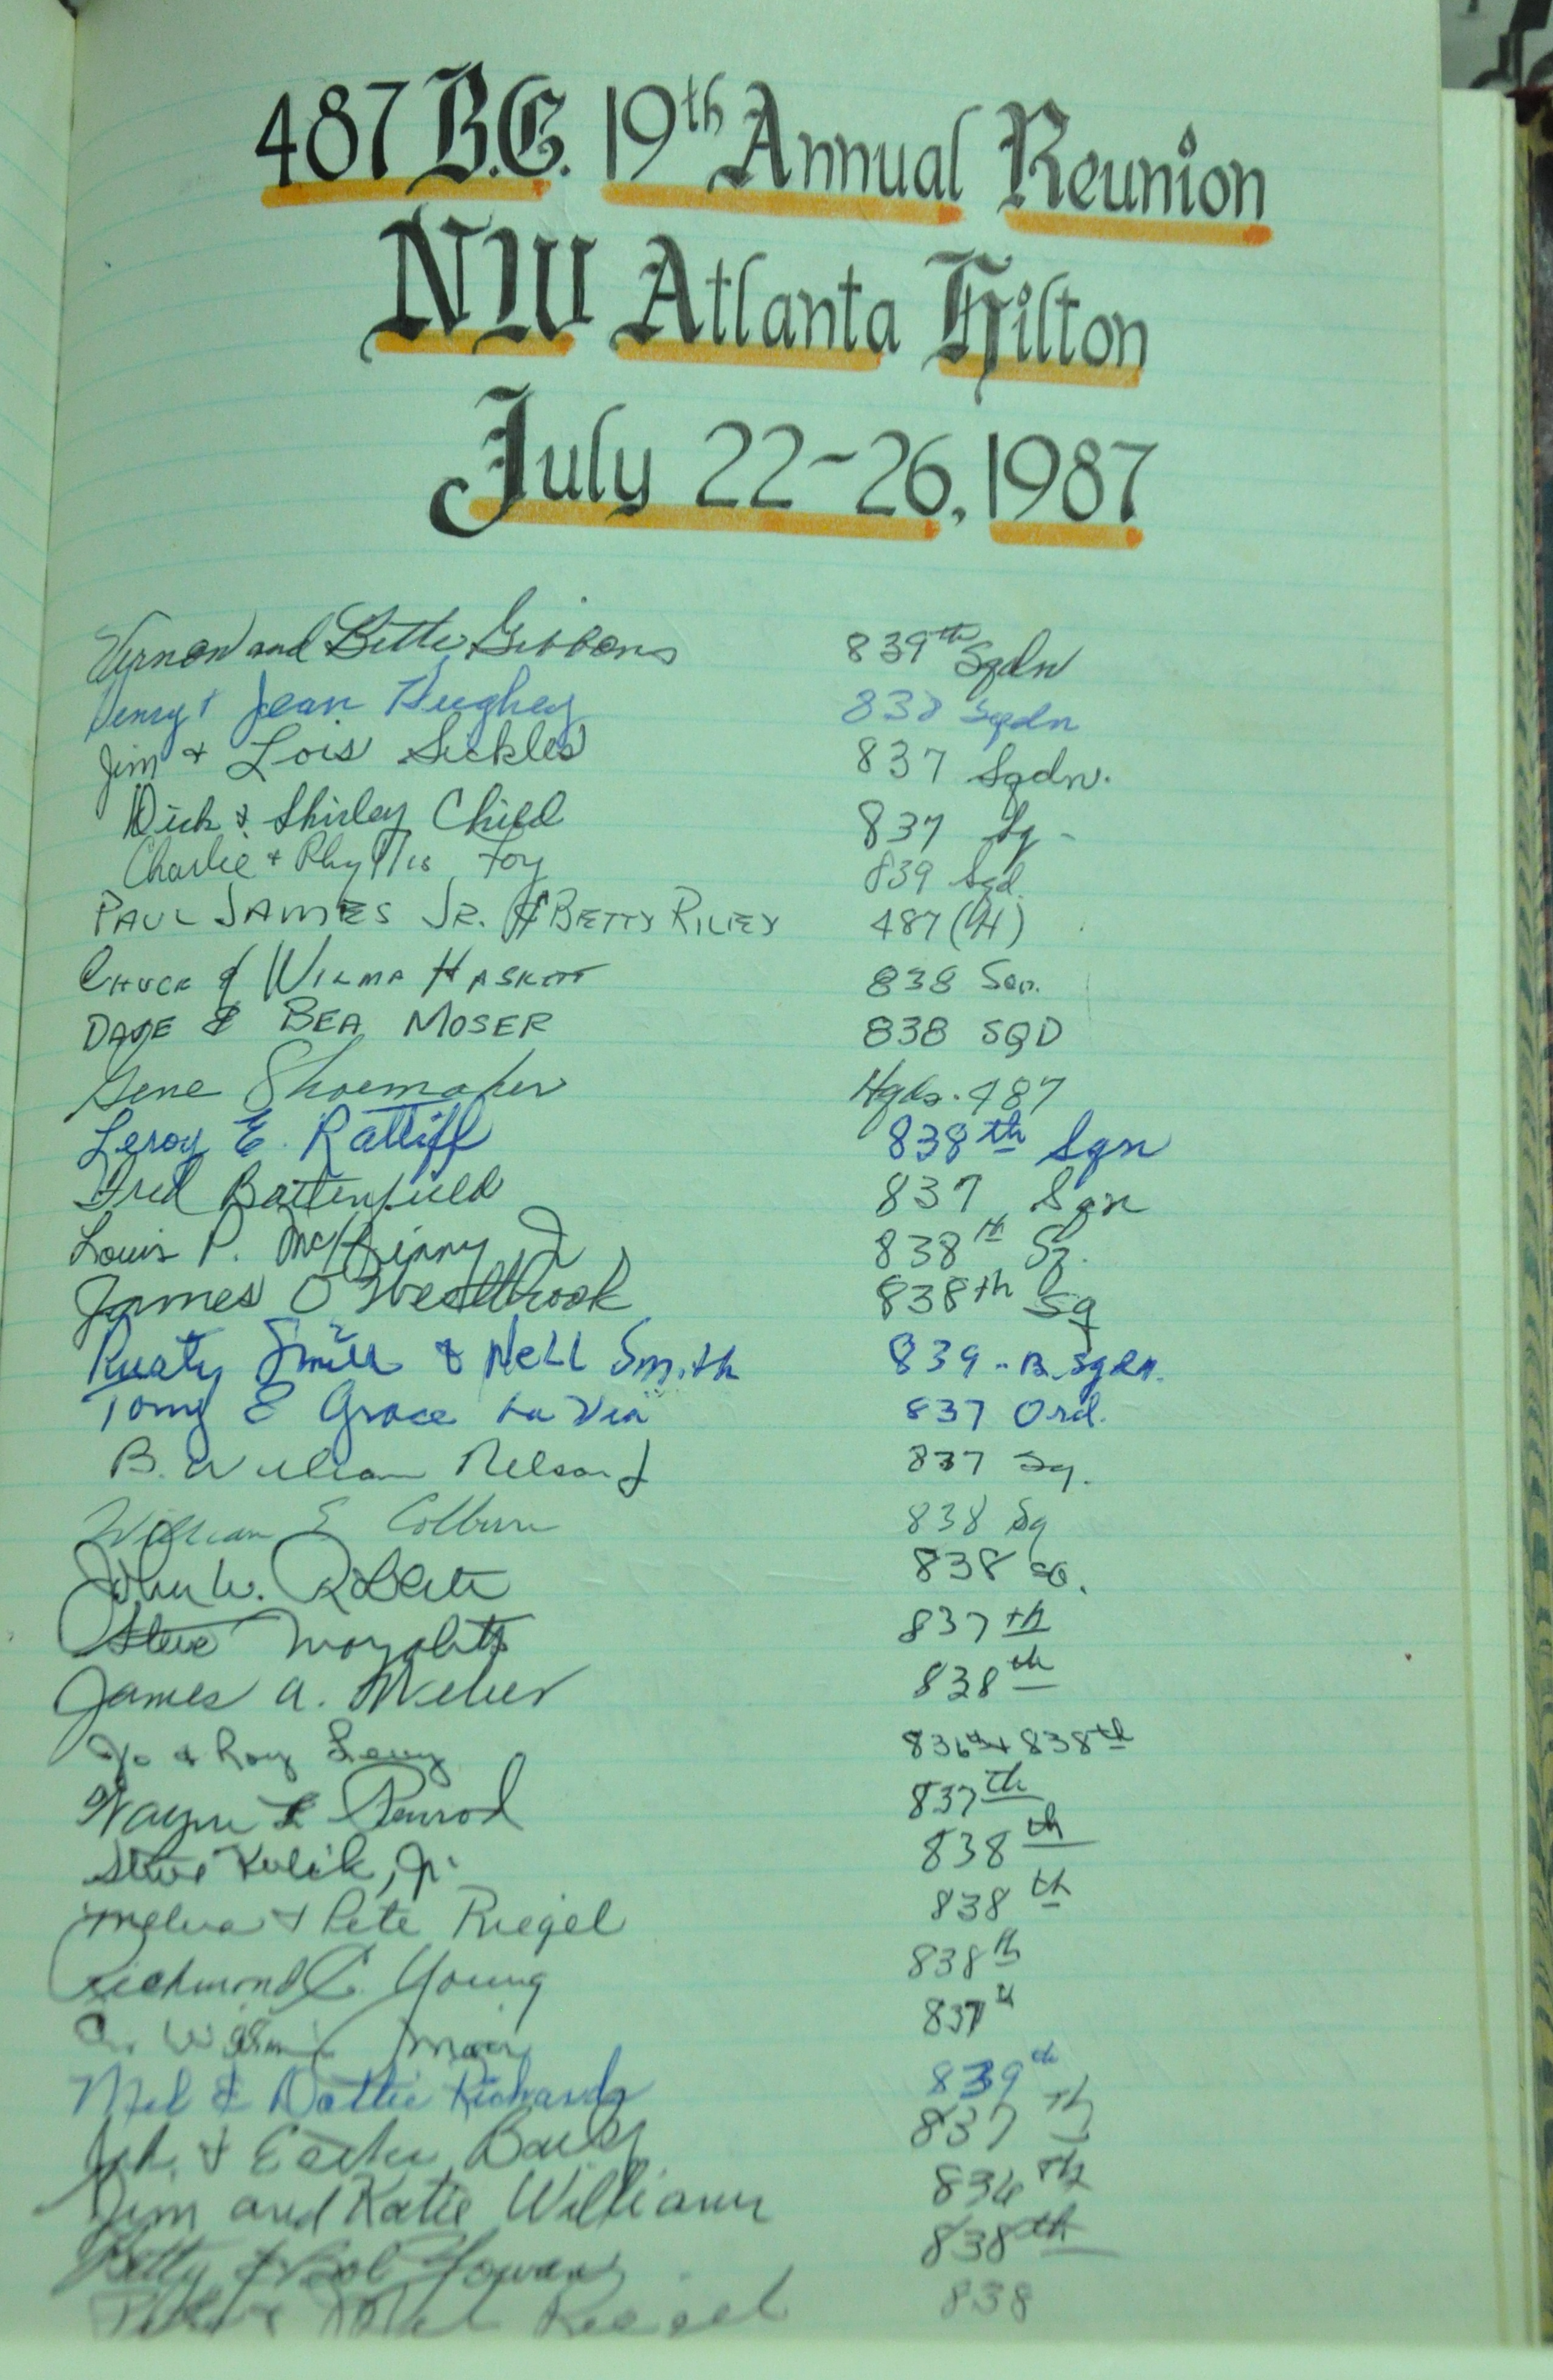 487 B.G. 19th Annual Reunion
NW Atlanta Hilton
July 22-26, 1987
Vernon and Bette Gibbons 839th Sqdn
Henry & Jean Hughey 838 Sqdn
Jim & Lois Sickles 837 Sqdn.
Dick & Shirley Child 837 Sq-
Charlie + Phyllis Foy 839 Sqd.
PAUL JAMES JR. & BETTY RILEY 487 (H)
CHUCK & WILMA HASKETT 838 Sqn.
DAVE & BEA MOSER 838 SQD
Gene Shoemaker Hqds. 487
Leroy E. Ratliff 838th Sqn
Fred Battenfield 837 Sqn
Louis P. McKinny 838th Sq.
James O Westbrook 838th Sq
Rusty Smith & Nell Smith 839-B. Sqdn.
Tony & Grace La Via 837 Ord.
B. William Nelson 837 Sq.
William E Colburn 838 Sq
John W. Roberts 838 SQ.
Steve 837th
James A. Weber 838th
Jo & Roy Levy 836th + 838th
Wayne L Penrod 837th
Steve Kulik, Jr. 838th
Melva + Pete Riegel 838th
Richmond C. Young 838th
837th
Mel & Dottie Richards 839th
& 837th
Jim and Katie Williams 836th
Betty & Bob 838th
838